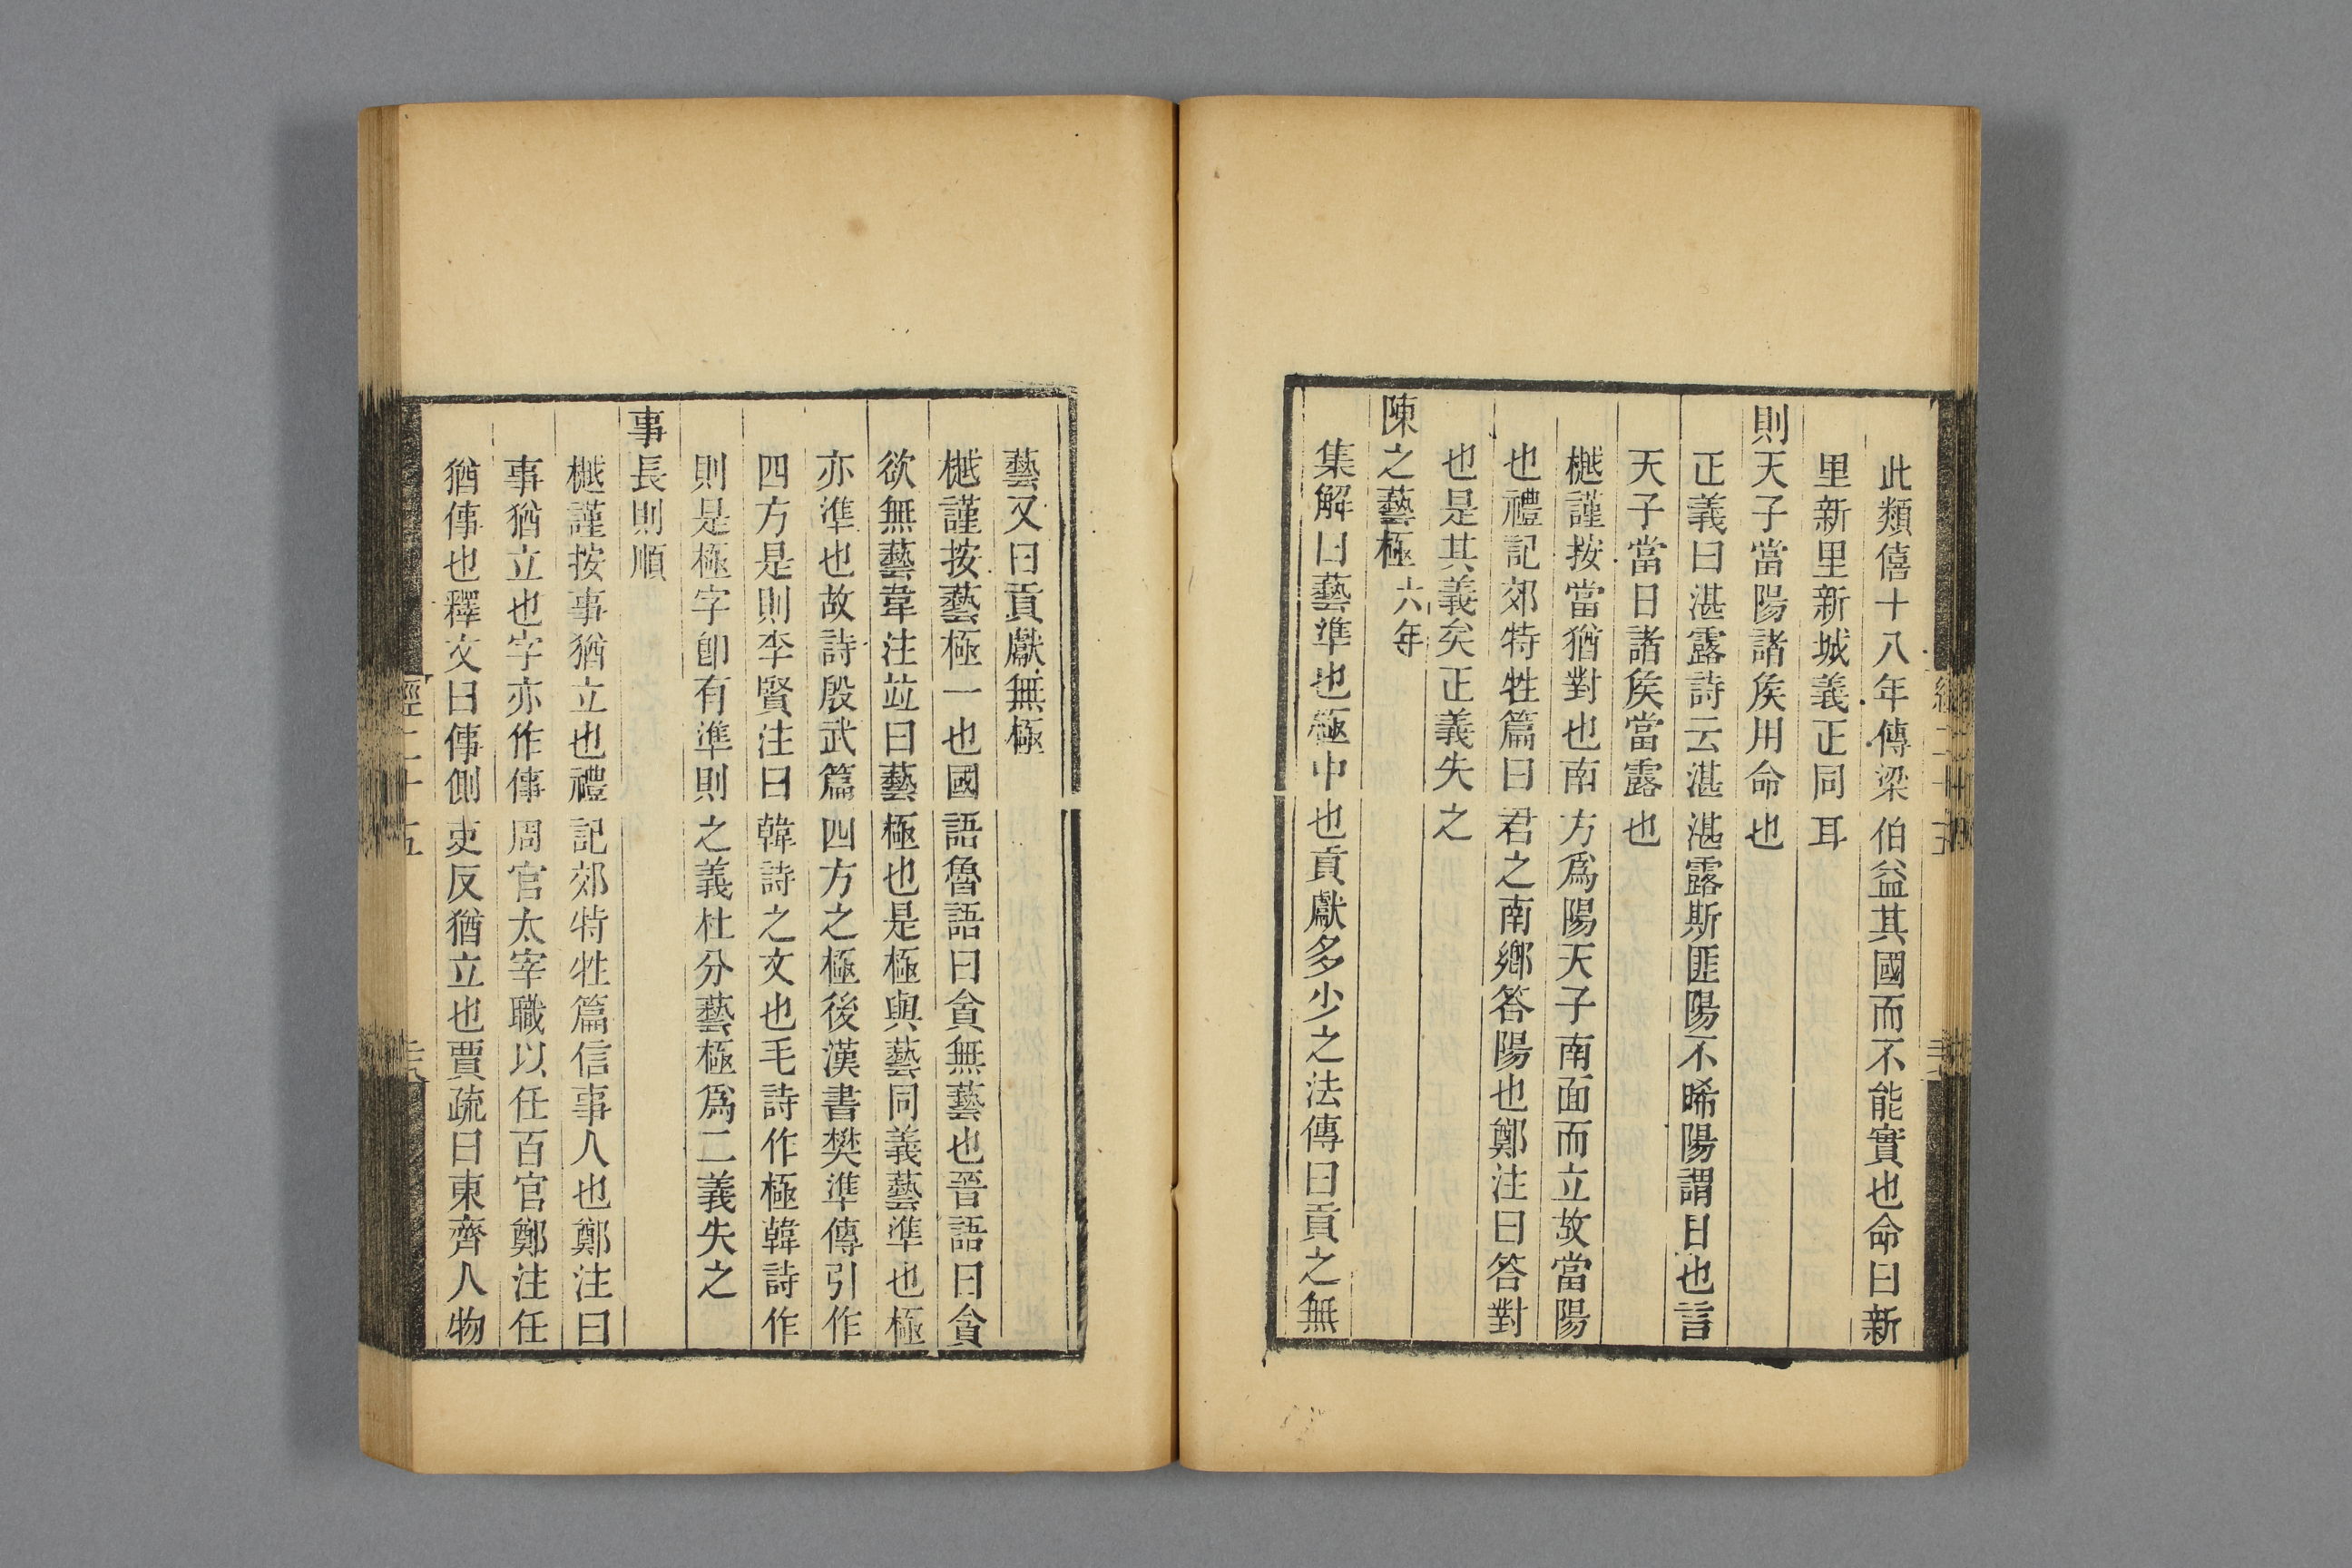 此類僖十八年傳梁伯益其國而不能實也命曰新
里新里新城義正同耳
則天子當陽諸矦用命也
正義曰湛露詩云湛湛露斯匪陽不晞陽謂日也言
天子當日諸矦當露也
樾謹按當猶對也南方爲陽天子南面而立故當陽
也禮記郊特牲篇曰君之南鄉答陽也鄭注曰答對
也是其義矣正義失之
陳之藝極六年
集解曰藝準也極中也貢獻多少之法傳曰貢之無
藝又曰貢獻無極
樾謹按藝極一也國語魯語曰貪無藝也晉語曰貪
欲無藝韋注竝曰藝極也是極與藝同義藝準也極
亦準也故詩殷武篇四方之極後漢書樊準傳引作
四方是則李賢注曰韓詩之文也毛詩作極韓詩作
則是極字卽有準則之義杜分藝極爲二義失之
事長則順
樾謹按事猶立也禮記郊特牲篇信事人也鄭注曰
事猶立也字亦作倳周官太宰職以任百官鄭注任
猶倳也釋文曰倳側吏反猶立也賈疏曰東齊人物
經二十五